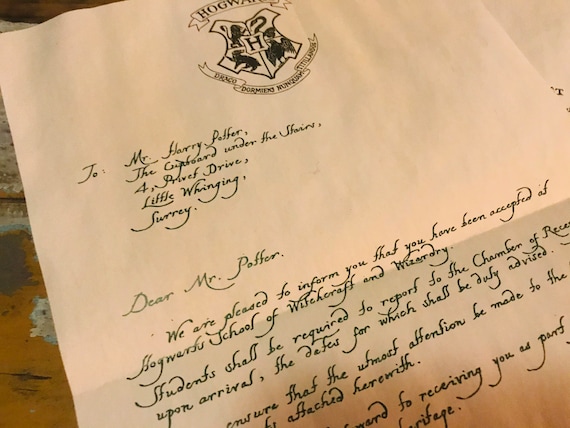 HOGWARTS
DRACO DORMIENS NUNQUAM TITILLANDUS
To: Mr. Harry Potter,
The Cupboard under the Stairs,
4, Privet Drive,
Little Whinging,
Surrey.
Dear Mr. Potter.
We are pleased to inform you that you have been accepted at
Hogwarts School of Witchcraft and Wizardry.
Students shall be required to report to the Chamber of
upon arrival, the dates for which shall be duly advised.
ensure that the utmost attention be made to the
attached herewith.
forward to receiving you as part
heritage.